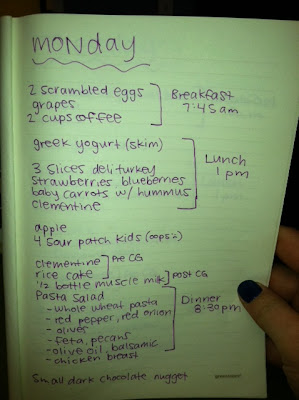 Monday
2 scrambled eggs
grapes
2 cups coffee
Breakfast
7:45am
greek yogurt (skim)
3 slices deli turkey
strawberries, blueberries
baby carrots w/ hummus
clementine
Lunch
1 pm
apple
4 sour patch kids (oops :)
clementine
rice cake
pre CG
1/2 bottle muscle milk
post CG
Pasta salad
- whole wheat pasta
- red pepper, red onion
- olives
- feta, pecans
- olive oil, balsamic
- chicken breast
Dinner
8:30pm
small dark chocolate nugget